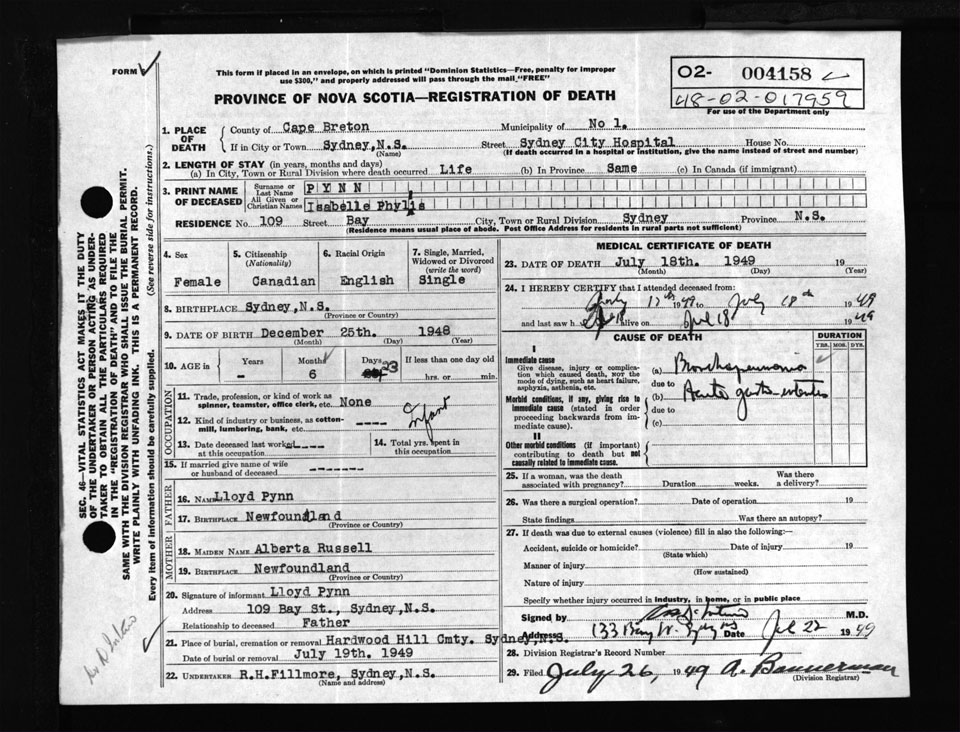 FORM
This form if placed in an envelope, on which is printed "Dominion Statistics—Free, penalty for improper
use $300," and properly addressed will pass through the mail "FREE"
PROVINCE OF NOVA SCOTIA—REGISTRATION OF DEATH
O2- 004158
48-02-017959
For use of the Department only
SEC. 46—VITAL STATISTICS ACT MAKES IT THE DUTY
OF THE UNDERTAKER OR PERSON ACTING AS UNDER-
TAKER TO OBTAIN ALL THE PARTICULARS REQUIRED
IN THE "REGISTRATION OF DEATH" AND TO FILE THE
SAME WITH THE DIVISION REGISTRAR WHO SHALL ISSUE THE BURIAL PERMIT.
WRITE PLAINLY WITH UNFADING INK. THIS IS A PERMANENT RECORD.
Every item of information should be carefully supplied. (See reverse side for instructions.)
1. PLACE OF DEATH
County of Cape Breton Municipality of No 1.
If in City or Town Sydney,N.S. Street Sydney City Hospital House No.
(Name) (If death occurred in a hospital or institution, give the name instead of street and number)
2. LENGTH OF STAY (in years, months and days)
(a) In City, Town or Rural Division where death occurred Life (b) In Province Same (c) In Canada (if immigrant)
3. PRINT NAME OF DECEASED
Surname or Last Name PYNN
All Given or Christian Names Isabelle Phylis
RESIDENCE No. 109 Street Bay City, Town or Rural Division Sydney Province N.S.
(Residence means usual place of abode. Post Office Address for residents in rural parts not sufficient)
4. Sex Female
5. Citizenship (Nationality) Canadian
6. Racial Origin English
7. Single, Married, Widowed or Divorced (write the word) Single
8. BIRTHPLACE Sydney,N.S.
(Province or Country)
9. DATE OF BIRTH December 25th. 1948
(Month) (Day) (Year)
10. AGE in Years Months Days If less than one day old
- 6 23 hrs. or min.
OCCUPATION
11. Trade, profession, or kind of work as
spinner, teamster, office clerk, etc. None
12. Kind of industry or business, as cotton-
mill, lumbering, bank, etc. ----
Infant
13. Date deceased last worked at this occupation ----
14. Total yrs. spent in this occupation
15. If married give name of wife
or husband of deceased -------
FATHER
16. NAME Lloyd Pynn
17. BIRTHPLACE Newfoundland
(Province or Country)
MOTHER
18. MAIDEN NAME Alberta Russell
19. BIRTHPLACE Newfoundland
(Province or Country)
20. Signature of informant Lloyd Pynn
Address 109 Bay St., Sydney,N.S.
Relationship to deceased Father
21. Place of burial, cremation or removal Hardwood Hill Cmty. Sydney,N.S.
Date of burial or removal July 19th. 1949
22. UNDERTAKER R.H.Fillmore, Sydney,N.S.
(Name and address)
MEDICAL CERTIFICATE OF DEATH
23. DATE OF DEATH July 18th. 1949 19
(Month) (Day) (Year)
24. I HEREBY CERTIFY that I attended deceased from:
17th 1949 to July 18th 1949
and last saw h alive on July 18 1949
CAUSE OF DEATH
DURATION
YRS. MOS. DYS.
I
Immediate cause
Give disease, injury or complica-
tion which caused death, NOT the
mode of dying, such as heart failure,
asphyxia, asthenia, etc.
(a) Bronchopneumonia
due to
Morbid conditions, if any, giving rise to
immediate cause (stated in order
proceeding backwards from im-
mediate cause).
(b) Acute gastro-enteritis
due to
(c)
II
Other morbid conditions (if important)
contributing to death but not
causally related to immediate cause.
25. If a woman, was the death
associated with pregnancy? Duration weeks. Was there a delivery?
26. Was there a surgical operation? Date of operation 19
State findings Was there an autopsy?
27. If death was due to external causes (violence) fill in also the following:—
Accident, suicide or homicide? Date of injury 19
(State which)
Manner of injury
(How sustained)
Nature of injury
Specify whether injury occurred in industry, in home, or in public place
Signed by M.D.
Address 133 Date Jul 22 1949
28. Division Registrar's Record Number
29. Filed July 26, 1949 A. Bannerman
(Division Registrar)